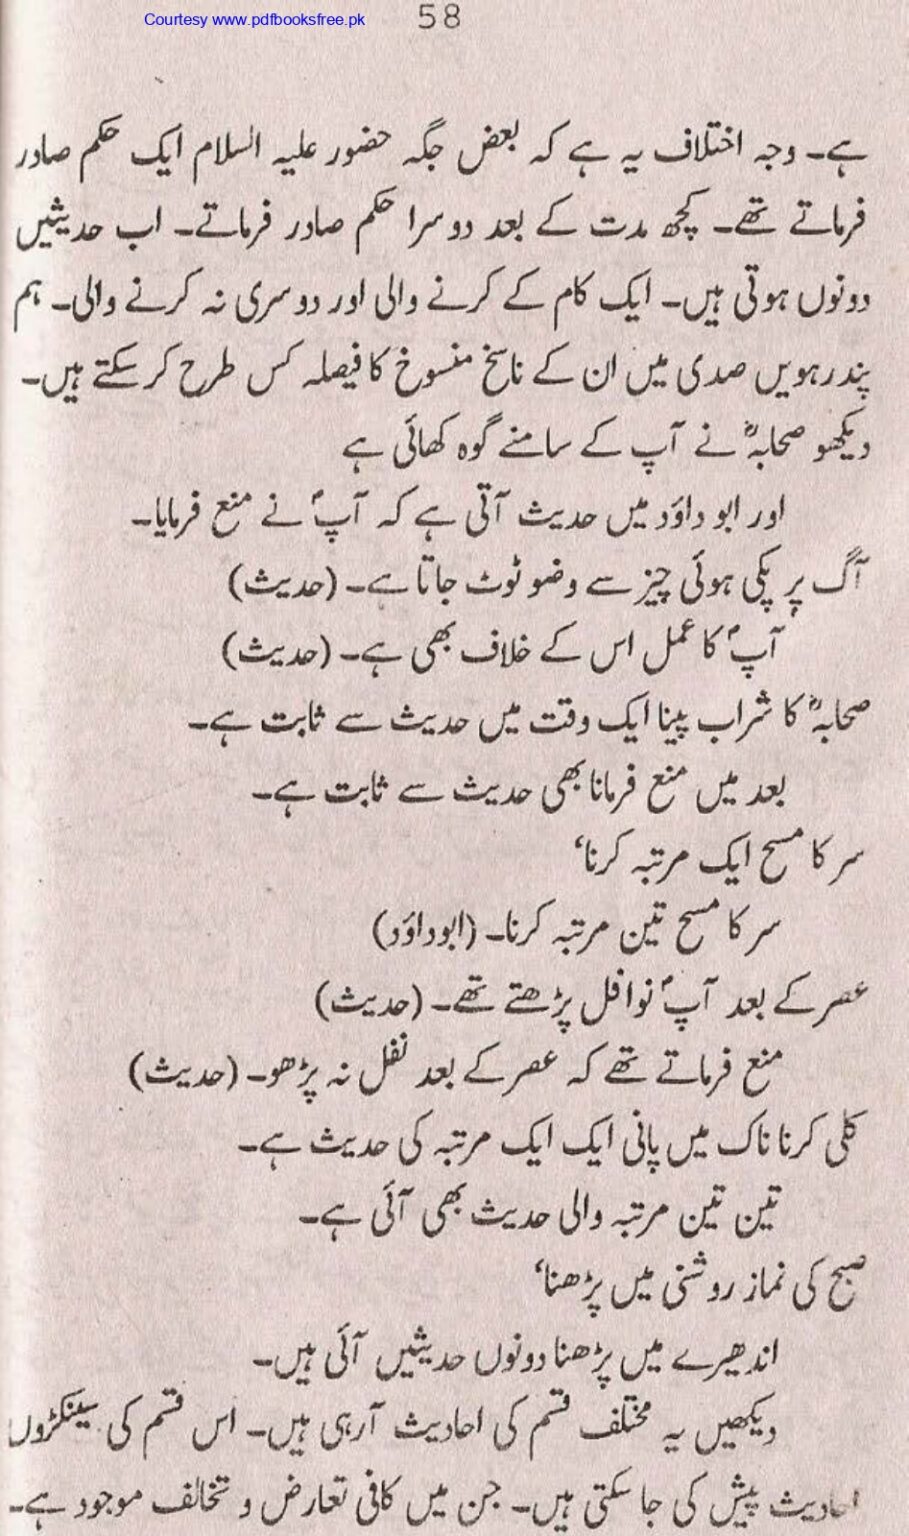 Courtesy www.pdfbooksfree.pk
58
ہے۔ وجہ اختلاف یہ ہے کہ بعض جگہ حضور علیہ السلام ایک حکم صادر
فرماتے تھے۔ کچھ مدت کے بعد دوسرا حکم صادر فرماتے۔ اب حدیثیں
دونوں ہوتی ہیں۔ ایک کام کے کرنے والی اور دوسری نہ کرنے والی۔ ہم
پندرہویں صدی میں ان کے ناسخ منسوخ کا فیصلہ کس طرح کر سکتے ہیں۔
دیکھو صحابہؓ نے آپ کے سامنے گوہ کھائی ہے
اور ابو داؤد میں حدیث آتی ہے کہ آپؐ نے منع فرمایا۔
آگ پر پکی ہوئی چیز سے وضو ٹوٹ جاتا ہے۔ (حدیث)
آپؐ کا عمل اس کے خلاف بھی ہے۔ (حدیث)
صحابہؓ کا شراب پینا ایک وقت میں حدیث سے ثابت ہے۔
بعد میں منع فرمانا بھی حدیث سے ثابت ہے۔
سر کا مسح ایک مرتبہ کرنا‘
سر کا مسح تین مرتبہ کرنا۔ (ابوداؤد)
عصر کے بعد آپؐ نوافل پڑھتے تھے۔ (حدیث)
منع فرماتے تھے کہ عصر کے بعد نفل نہ پڑھو۔ (حدیث)
کلی کرنا ناک میں پانی ایک ایک مرتبہ کی حدیث ہے۔
تین تین مرتبہ والی حدیث بھی آئی ہے۔
صبح کی نماز روشنی میں پڑھنا‘
اندھیرے میں پڑھنا دونوں حدیثیں آئی ہیں۔
دیکھیں یہ مختلف قسم کی احادیث آرہی ہیں۔ اس قسم کی سینکڑوں
احادیث پیش کی جا سکتی ہیں۔ جن میں کافی تعارض و تخالف موجود ہے۔